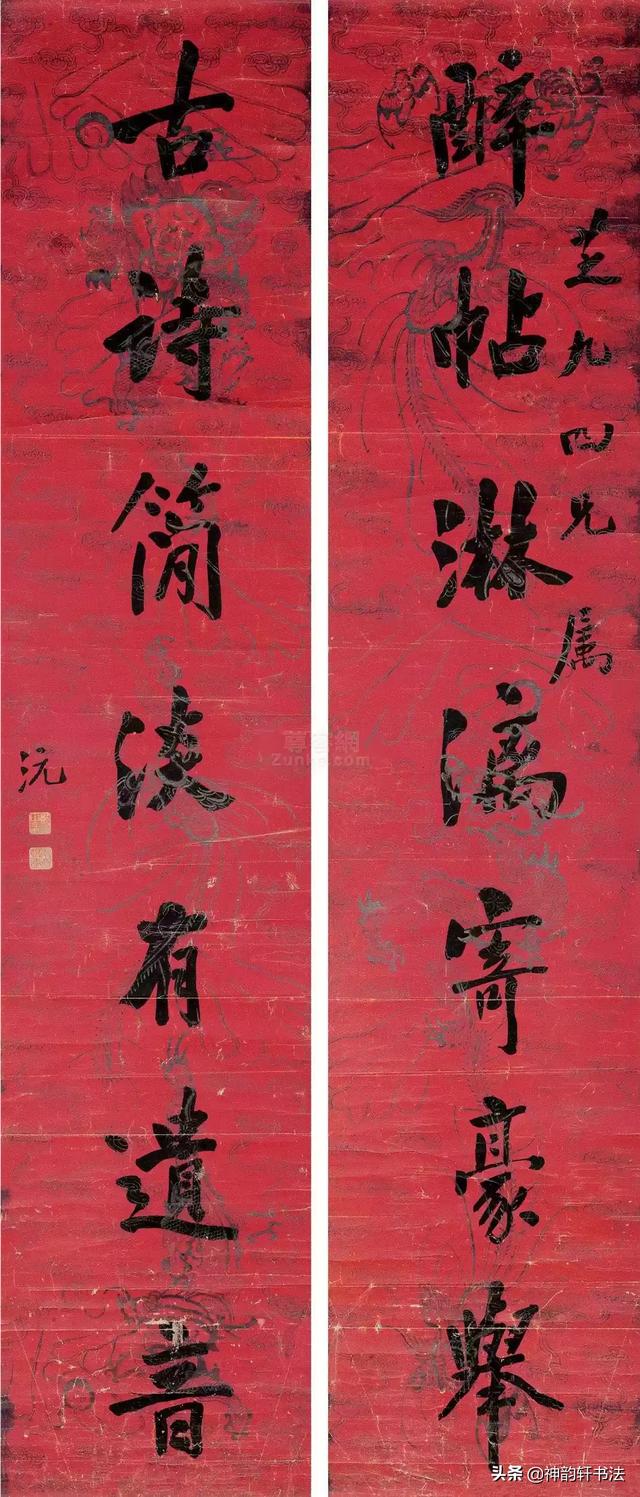 醉帖淋漓寄豪舉
芝九四兄属
古诗简淡有遺音
沅
尊客網
Zunke.com
头条 @神韵轩书法